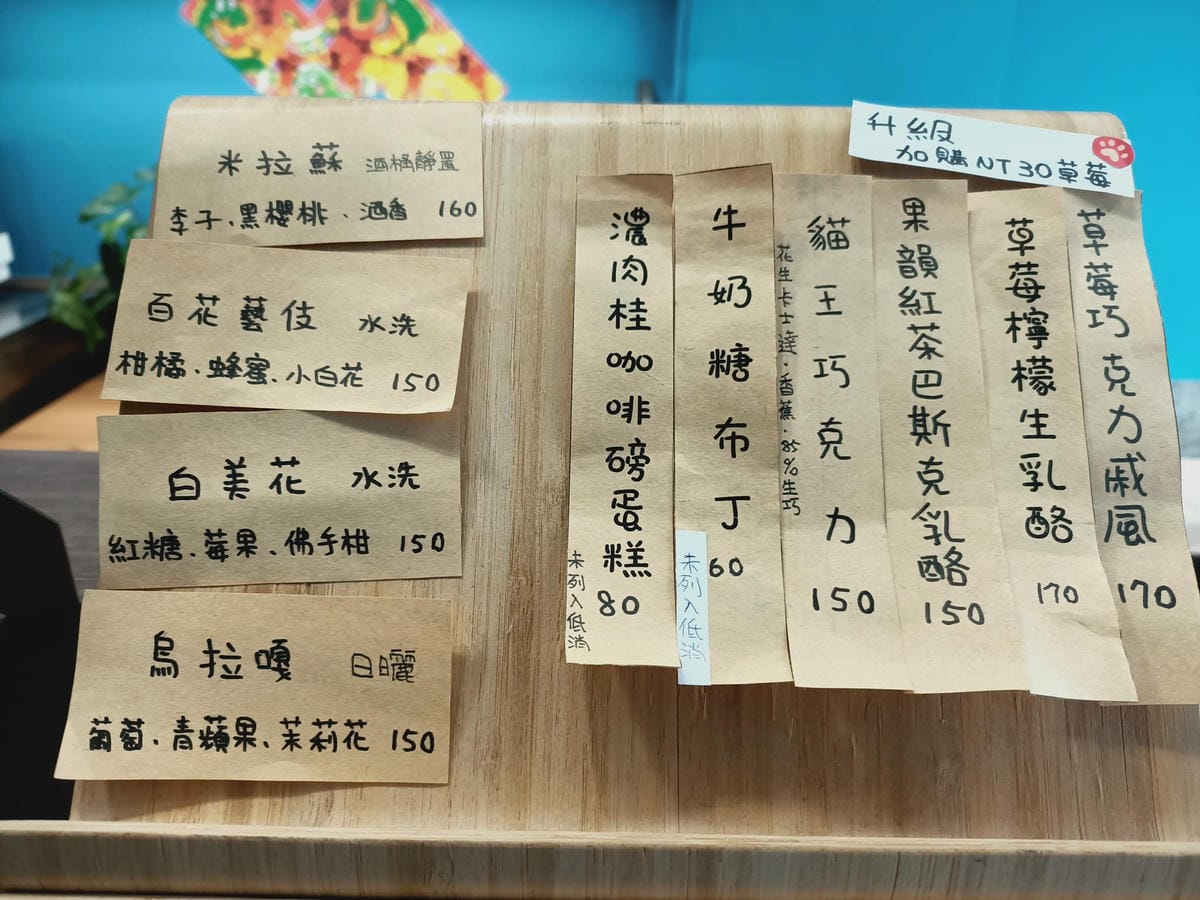 米拉蘇 酒桶靜置
李子、黑櫻桃、酒香 160
百花藝伎 水洗
柑橘、蜂蜜、小白花 150
白美花 水洗
紅糖、莓果、佛手柑 150
烏拉嘎 日曬
葡萄、青蘋果、茉莉花 150
升級
加購NT30草莓
草莓巧克力戚風
170
草莓檸檬生乳酪
170
果韻紅茶巴斯克乳酪
150
貓王巧克力
150
花生卡士達・香蕉・85%生巧
牛奶糖布丁
60
未列入低消
濃肉桂咖啡磅蛋糕
80
未列入低消